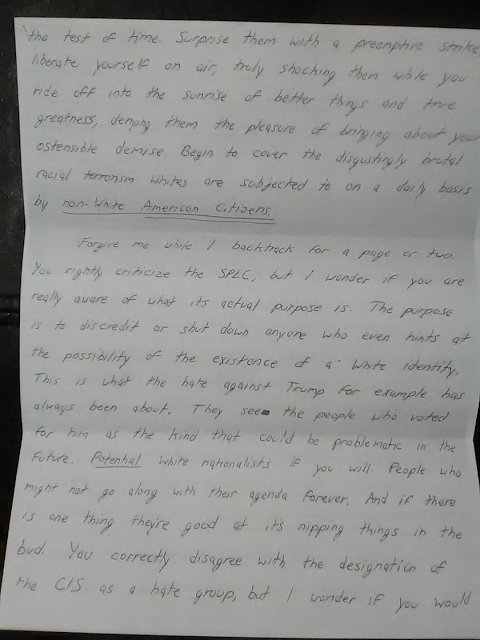 the test of time. Surprise them with a preemptive strike,
liberate yourself on air, truly shocking them while you
ride off into the sunrise of better things and true
greatness, denying them the pleasure of bringing about your
ostensible demise. Begin to cover the disgustingly brutal
racial terrorism whites are subjected to on a daily basis
by non-White American Citizens.
Forgive me while I backtrack for a page or two.
You rightly criticize the SPLC, but I wonder if you are
really aware of what its actual purpose is. The purpose
is to discredit or shut down anyone who even hints at
the possibility of the existence of a White identity.
This is what the hate against Trump for example has
always been about. They see the people who voted
for him as the kind that could be problematic in the
future. Potential white nationalists if you will. People who
might not go along with their agenda forever. And if there
is one thing they're good at its nipping things in the
bud. You correctly disagree with the designation of
the CIS as a hate group, but I wonder if you would